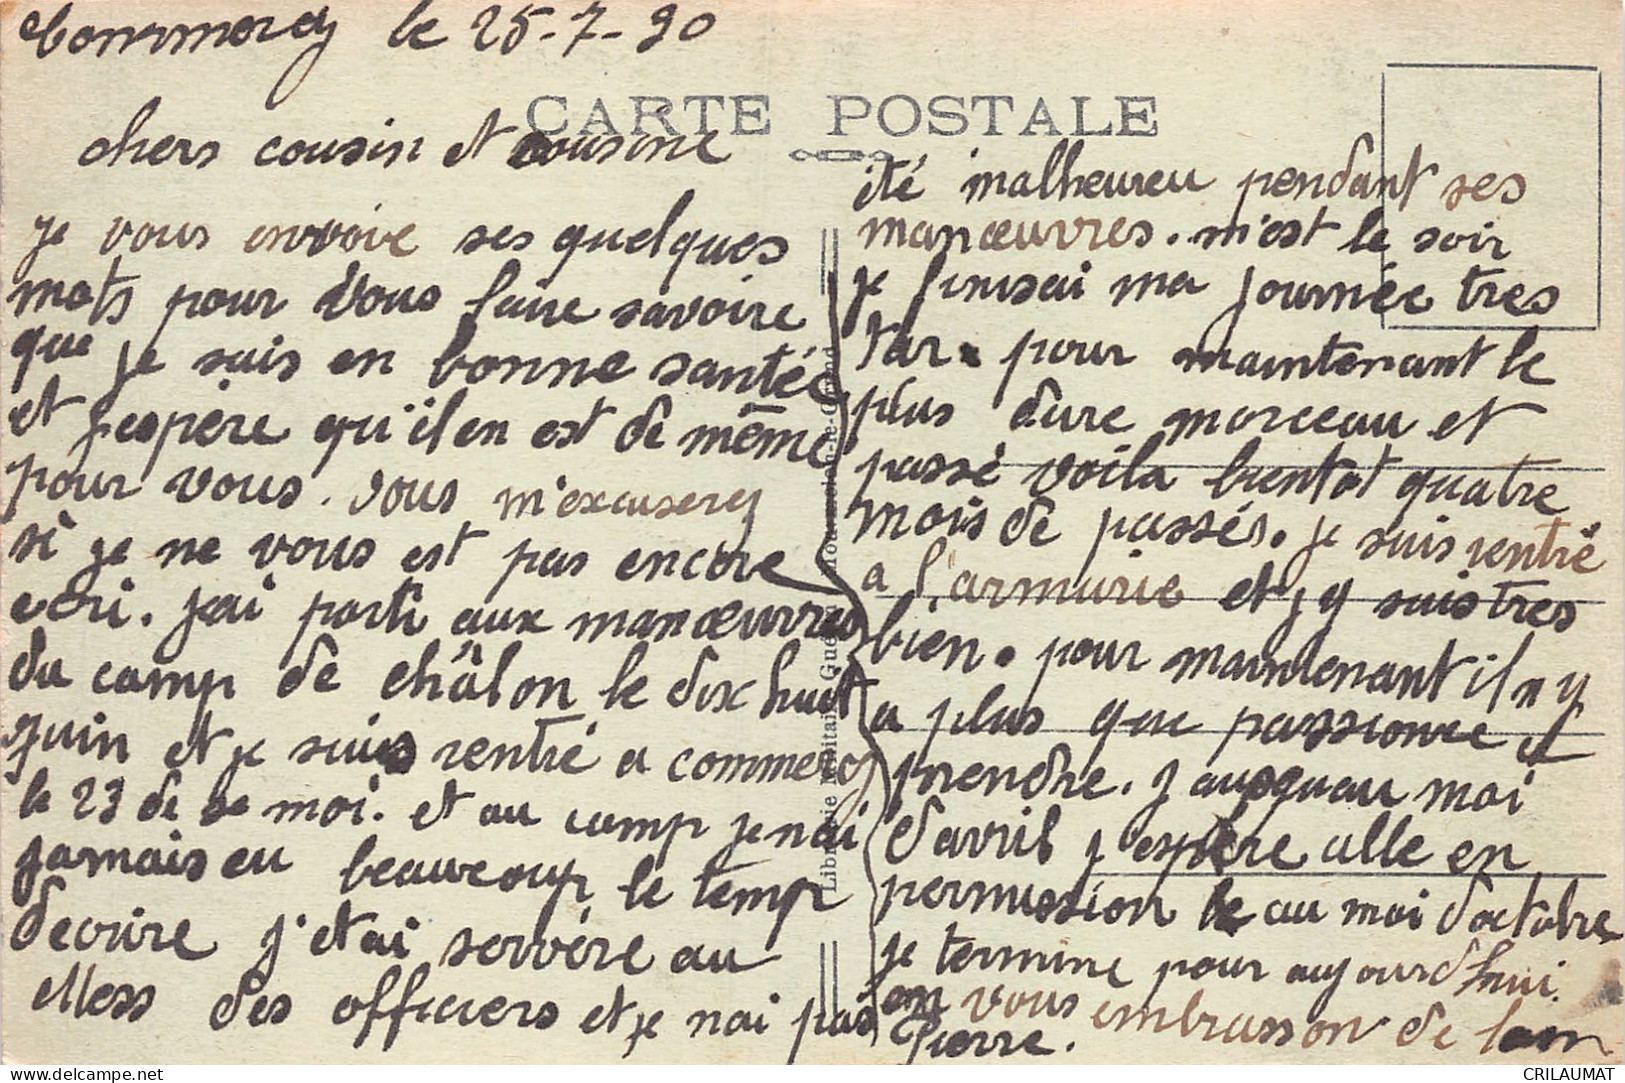 Commercy le 25-7-30
CARTE POSTALE
chers cousin et cousine
je vous envoie ses quelques
mots pour vous faire savoire
que je suis en bonne santée
et j'espère qu'il en est de même
pour vous. vous m'excuserez
si je ne vous est pas encore
ecri. j'ai parti aux manœuvres
du camp de châlon le dix huit
juin et je suis rentré a commercy
le 23 de se moi. et au camp je nai
jamais eu beaucoup le temp
decrire j'etai servére au
Mess des officiers et je nai pas
été malheureu pendant ses
manœuvres. m'est le soir
je finisai ma journée tres
tar. pour maintenant le
plus dure morceau et
passé voila bientot quatre
mois de passés. je suis rentré
a l'armurie et j y suis tres
bien. pour maintenant il n y
a plus que passionce a
prendre. j ausquau moi
d'avril j espère alle en
permission le au moi d'octobre
je termine pour aujourd'hui.
en vous embrasson de loin
Pierre.
Librairie Militaire Guérin
CRILAUMAT